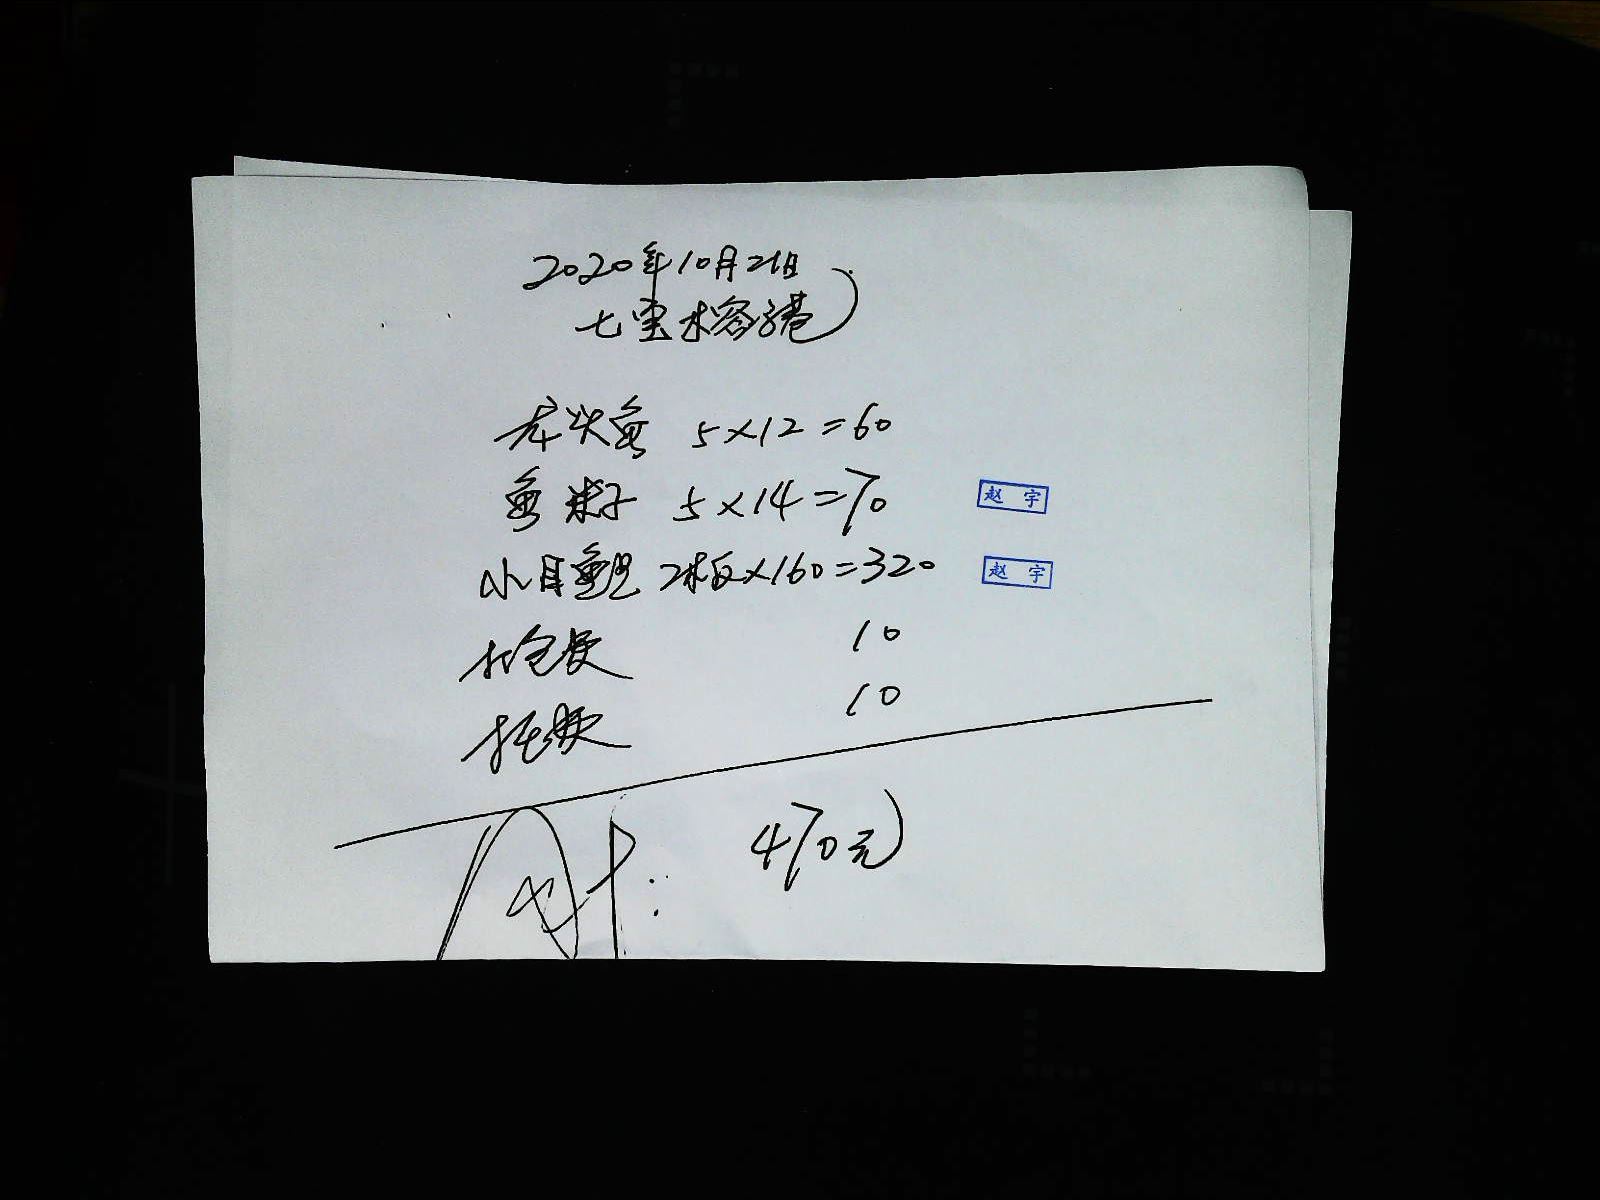 2020年10月21日
七宝木容港
龙头鱼 5×12=60
鱼籽 5×14=70
赵 宇
小目鱼 2板×160=320
赵 宇
打包费 10
托费 10
470元